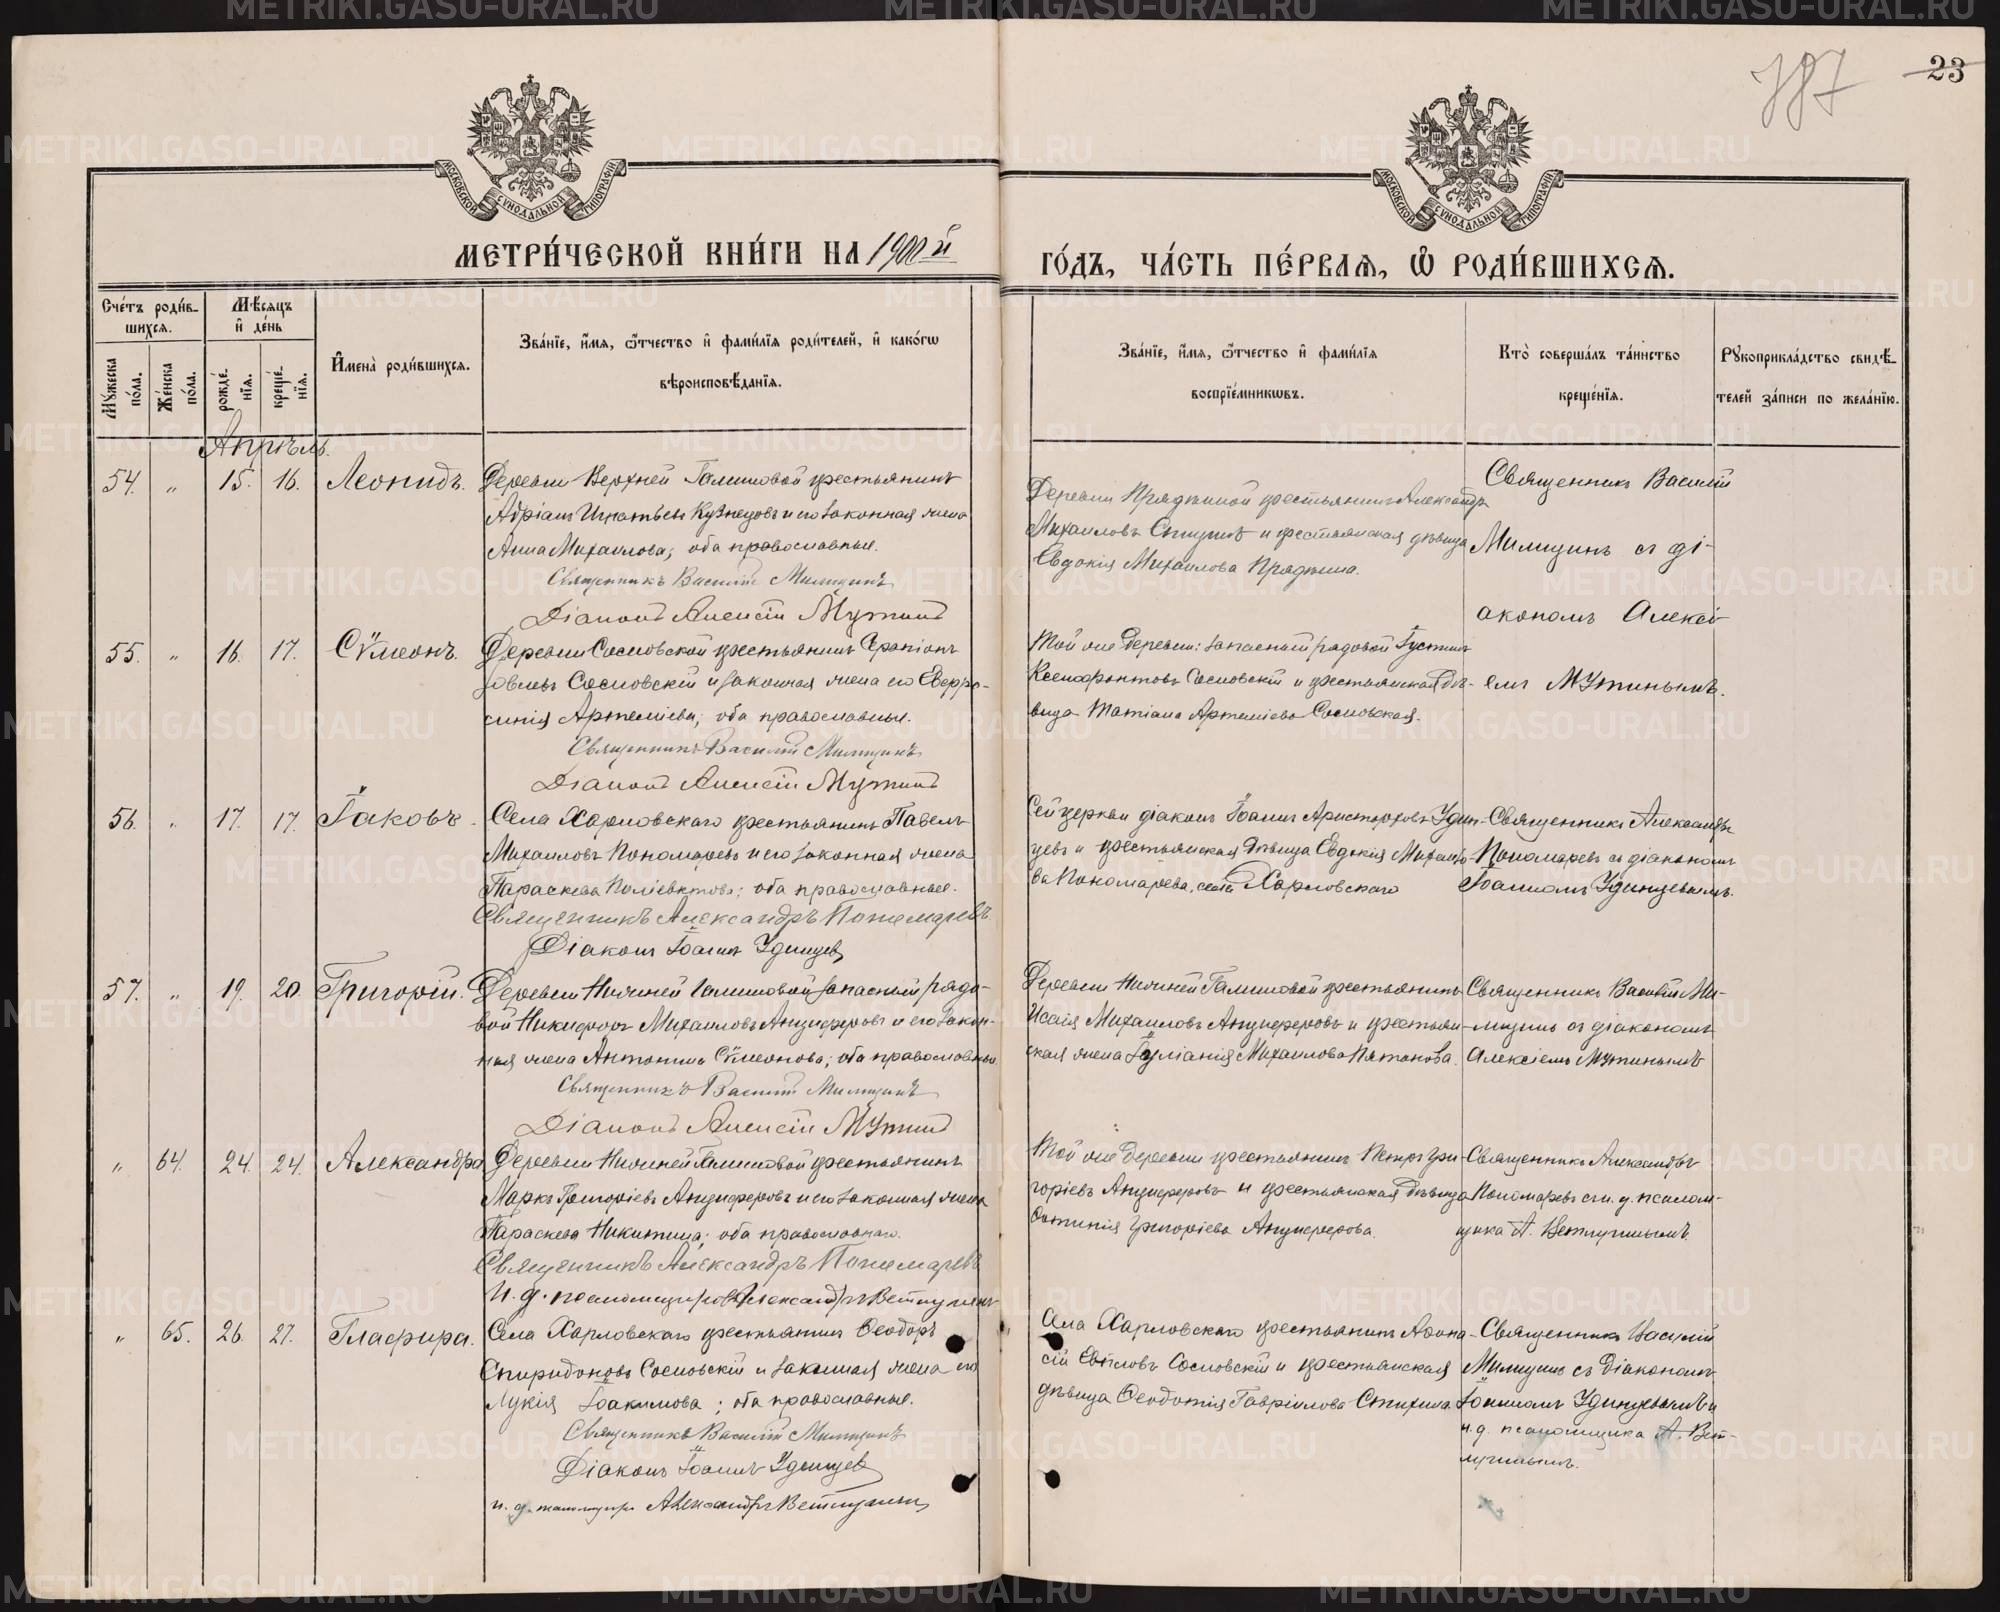 787
23
МОСКОВСКОЙ СѴНОДАЛЬНОЙ ТИПОГРАФІИ
МОСКОВСКОЙ СѴНОДАЛЬНОЙ ТИПОГРАФІИ
МЕТРИ́ЧЕСКОЙ КНИ́ГИ НА 1900й
ГО́ДЪ, ЧА́СТЬ ПЕ́РВАѦ, Ѡ҆ РОДИ́ВШИХСѦ.
Сче́тъ роди́в-
шихсѧ.
Мѣ́сѧцъ
и҆ де́нь
Му́жеска по́ла.
Же́нска по́ла.
рожде́нїѧ.
креще́нїѧ.
И҆мена̀ роди́вшихсѧ.
Зва́нїе, и҆́мѧ, ѻ҆́тчество и҆ фами́лїѧ роди́телей, и҆ како́гѡ
вѣроисповѣ́данїѧ.
Зва́нїе, и҆́мѧ, ѻ҆́тчество и҆ фами́лїѧ
воспрїе́мникѡвъ.
Кто̀ соверша́лъ та́инство
креще́нїѧ.
Рꙋкоприкла́дство свидѣ́-
телей за́писи по жела́нїю.
Апрѣль.
54. „ 15. 16. Леонидъ.
Деревни Верхней Галишовой крестьянинъ
Адріанъ Игнатьевъ Кузнецовъ и его законная жена
Анна Михаилова; оба православные.
Священникъ Василій Милицинъ
Діаконъ Алексій Мутинъ
Деревни Прядеиной крестьянинъ Александръ
Михаиловъ и крестьянская дѣвица
Евдокія Михаилова Прядеина.
Священникъ Василій
Милицинъ съ ді-
акономъ Алексі-
емъ Мутинымъ.
55. „ 16. 17. Сѵмеонъ.
Деревни Сосновской крестьянинъ Серапіонъ
Іовлевъ Сосновскій и законная жена его Евфро-
синія Артеміева; оба православные.
Священникъ Василій Милицинъ
Діаконъ Алексій Мутинъ
Той же деревни: запасный рядовой Іустинъ
Ксенофонтовъ Сосновскій и крестьянская дѣ-
вица Татіана Артеміева Сосновская.
56. „ 17. 17. Іаковъ.
Села Харловскаго крестьянинъ Павелъ
Михаиловъ Пономаревъ и его законная жена
Параскева Поліевктова; оба православные.
Священникъ Александръ Пономаревъ
Діаконъ Іоаннъ Удинцевъ
Сей церкви діаконъ Іоаннъ Аристарховъ Удин-
цевъ и крестьянская дѣвица Евдокія Михаило-
ва Пономарева, села Харловскаго
Священникъ Александръ
Пономаревъ съ діакономъ
Іоанномъ Удинцевымъ.
57. „ 19. 20. Григорій.
Деревни Нижней Галишовой запасный рядо-
вой Никифоръ Михаиловъ Анциферовъ и его закон-
ная жена Антонина Сѵмеонова; оба православные.
Священникъ Василій Милицинъ
Діаконъ Алексій Мутинъ
Деревни Нижней Галишовой крестьянинъ
Исаія Михаиловъ Анциферовъ и крестьян-
ская жена Іуліанія Михаилова Пятанова.
Священникъ Василій Ми-
лицинъ съ діакономъ
Алексіемъ Мутинымъ
„ 64. 24. 24. Александра
Деревни Нижней Галишовой крестьянинъ
Маркъ Григоріевъ Анциферовъ и его законная жена
Параскева Никитина; оба православнаго.
Священникъ Александръ Пономаревъ
И. д. псаломщика Александръ Ветлугинъ
Той же деревни крестьянинъ Петръ Гри-
горіевъ Анциферовъ и крестьянская дѣвица
Фотинія Григоріева Анциферова.
Священникъ Александръ
Пономаревъ съ и. д. псалом-
щика А. Ветлугинымъ.
„ 65. 26. 27. Глафира.
Села Харловскаго крестьянинъ Ѳеодоръ
Спиридоновъ Сосновскій и законная жена его
Лукія Іоакимова; оба православные.
Священникъ Василій Милицинъ
Діаконъ Іоаннъ Удинцевъ
и. д. псаломщика Александръ Ветлугинъ
Села Харловскаго крестьянинъ Аѳана-
сій Сосновскій и крестьянская
дѣвица Ѳеодотія Гавріилова Стихина.
Священникъ Василій
Милицинъ съ Діакономъ
Іоанномъ Удинцевымъ и
и. д. псаломщика А. Вет-
лугинымъ.
METRIKI.GASO-URAL.RU